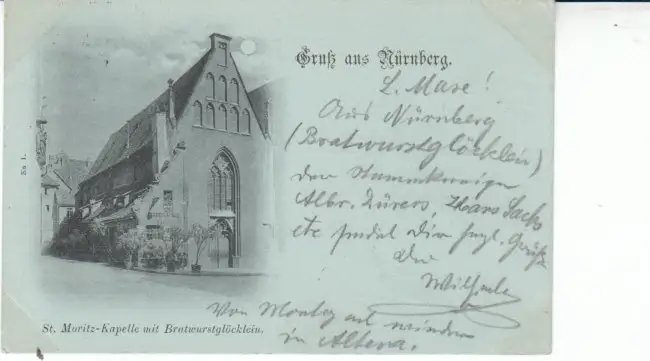 Gruß aus Nürnberg.
L. Maxe!
Aus Nürnberg
(Bratwurstglöcklein)
der Stammkneipe
Albr. Dürers, Hans Sachs
etc sendet Dir herzl. Grüße
Dein
Wilhelm
Von Montag ab wieder
in Altena.
St. Moritz-Kapelle mit Bratwurstglöcklein.
No 1.